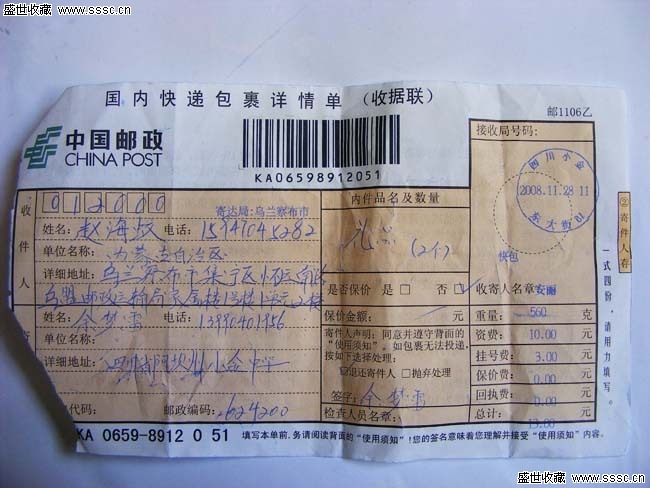 盛世收藏 www.sssc.cn
盛世收藏 www.sssc.cn
国内快递包裹详情单（收据联）
邮1106乙
中国邮政
CHINA POST
KA06598912051
接收局号码：
四川小金
2008.11.28 11
012000
寄达局:乌兰察布市
内件品名及数量
收件人
姓名： 赵海 电话： 15947045282
(2个)
快包
单位名称： 内蒙古自治区
详细地址： 乌兰察布市集宁区怀远南路
是否保价 是 否
收寄人名章：安丽
乌盟邮政运输局家属楼1号楼1单元2楼
保价金额： 元
重量： 560 克
姓名： 余梦雪 电话： 13990401956
寄件人声明：同意并遵守背面的
“使用须知”。如包裹无法投递，
按如下选择处理：
资费： 10.00 元
单位名称：
挂号费： 3.00 元
详细地址： 四川省阿坝州小金
退还寄件人 抛弃处理
保价费： 0.00 元
签字： 余梦雪
回执费： 0.00 元
代码： 邮政编码： 624200
检查人员名章：
总计： 13.00 元
KA 0659-8912 0 51
填写本单前,务请阅读背面的“使用须知”!您的签名意味着您理解并接受“使用须知”内容。
②寄件人存
一式四份，请用力填写。
盛世收藏 www.sssc.cn
盛世收藏 www.sssc.cn